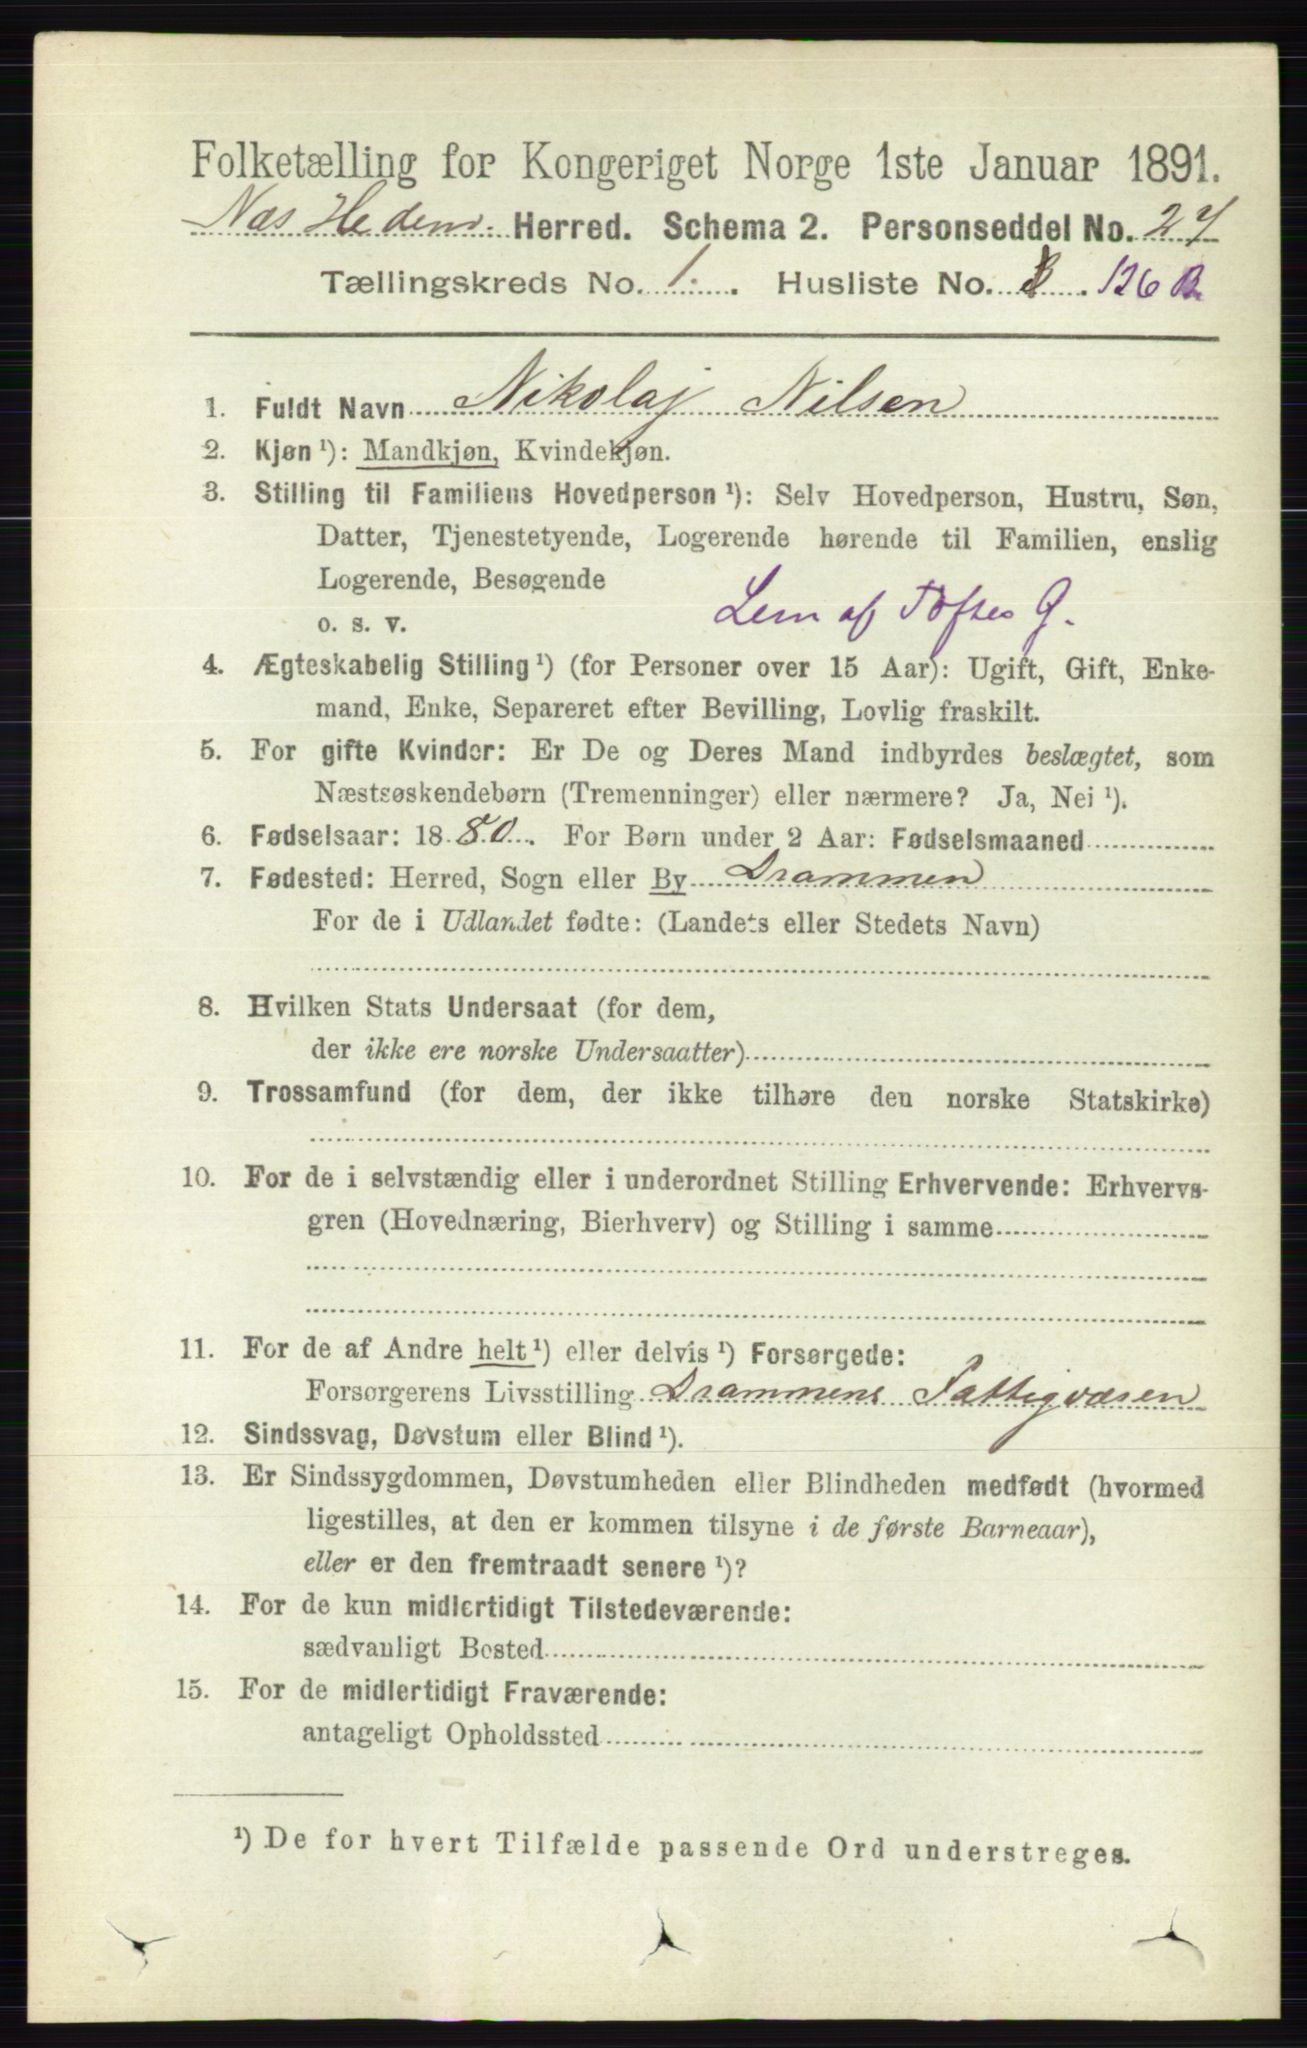 Folketælling for Kongeriget Norge 1ste Januar 1891.
Næs Hedem. Herred. Schema 2. Personseddel No. 27
Tællingskreds No. 1. Husliste No. 126 B
1. Fuldt Navn Nikolaj Nilsen
2. Kjøn ¹): Mandkjøn, Kvindekjøn.
3. Stilling til Familiens Hovedperson ¹): Selv Hovedperson, Hustru, Søn,
Datter, Tjenestetyende, Logerende hørende til Familien, enslig
Logerende, Besøgende
o. s. v. Lem af Toftes G.
4. Ægteskabelig Stilling ¹) (for Personer over 15 Aar): Ugift, Gift, Enke-
mand, Enke, Separeret efter Bevilling, Lovlig fraskilt.
5. For gifte Kvinder: Er De og Deres Mand indbyrdes beslægtet, som
Næstsøskendebørn (Tremenninger) eller nærmere? Ja, Nei ¹).
6. Fødselsaar: 1880. For Børn under 2 Aar: Fødselsmaaned
7. Fødested: Herred, Sogn eller By Drammen
For de i Udlandet fødte: (Landets eller Stedets Navn)
8. Hvilken Stats Undersaat (for dem,
der ikke ere norske Undersaatter)
9. Trossamfund (for dem, der ikke tilhøre den norske Statskirke)
10. For de i selvstændig eller i underordnet Stilling Erhvervende: Erhvervs-
gren (Hovednæring, Bierhverv) og Stilling i samme
11. For de af Andre helt ¹) eller delvis ¹) Forsørgede:
Forsørgerens Livsstilling Drammens Fattigvæsen
12. Sindssvag, Døvstum eller Blind ¹).
13. Er Sindssygdommen, Døvstumheden eller Blindheden medfødt (hvormed
ligestilles, at den er kommen tilsyne i de første Barneaar),
eller er den fremtraadt senere ¹)?
14. For de kun midlertidigt Tilstedeværende:
sædvanligt Bosted
15. For de midlertidigt Fraværende:
antageligt Opholdssted
¹) De for hvert Tilfælde passende Ord understreges.